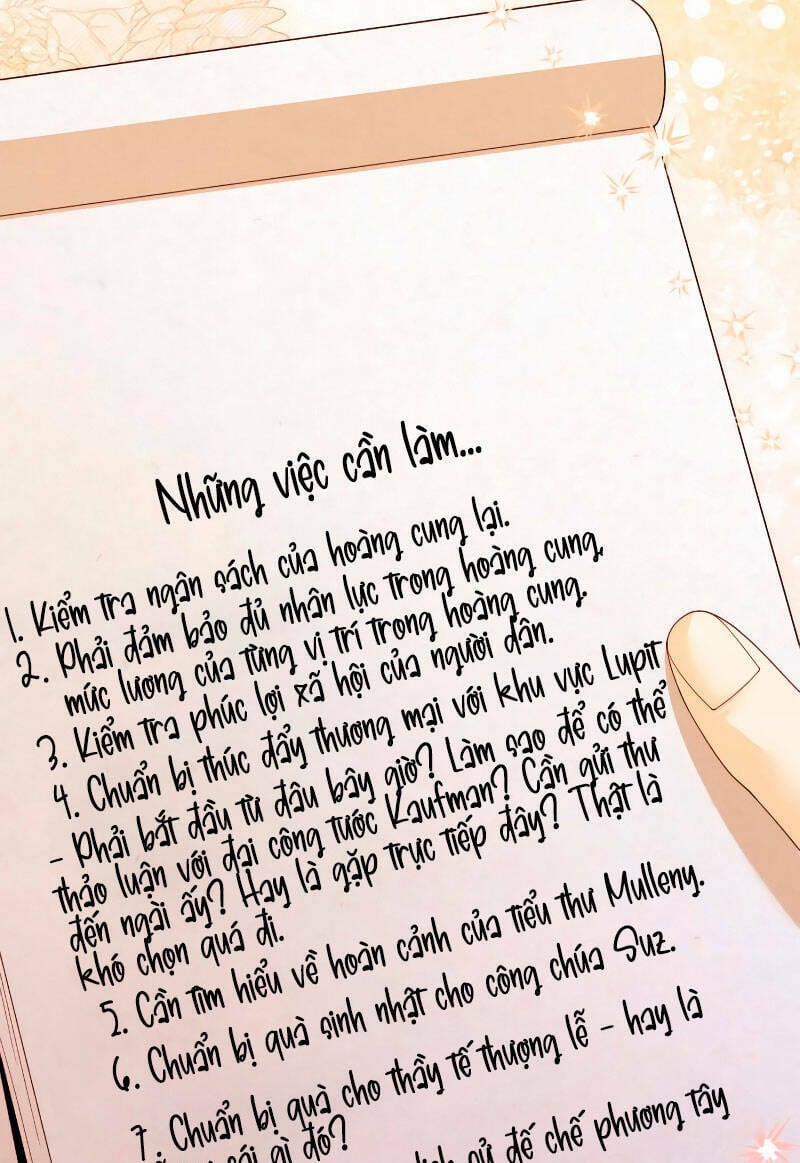 Những việc cần làm...
1. Kiểm tra ngân sách của hoàng cung lại.
2. Phải đảm bảo đủ nhân lực trong hoàng cung,
mức lương của từng vị trí trong hoàng cung.
3. Kiểm tra phúc lợi xã hội của người dân.
4. Chuẩn bị thúc đẩy thương mại với khu vực Lupit
- Phải bắt đầu từ đâu bây giờ? Làm sao để có thể
thảo luận với đại công tước Kaufman? Cần gửi thư
đến ngài ấy? Hay là gặp trực tiếp đây? Thật là
khó chọn quá đi.
5. Cần tìm hiểu về hoàn cảnh của tiểu thư Mulleny.
6. Chuẩn bị quà sinh nhật cho công chúa Suz.
7. Chuẩn bị quà cho thầy tế thượng lễ - hay là
cái gì đó?
sử đế chế phương tây